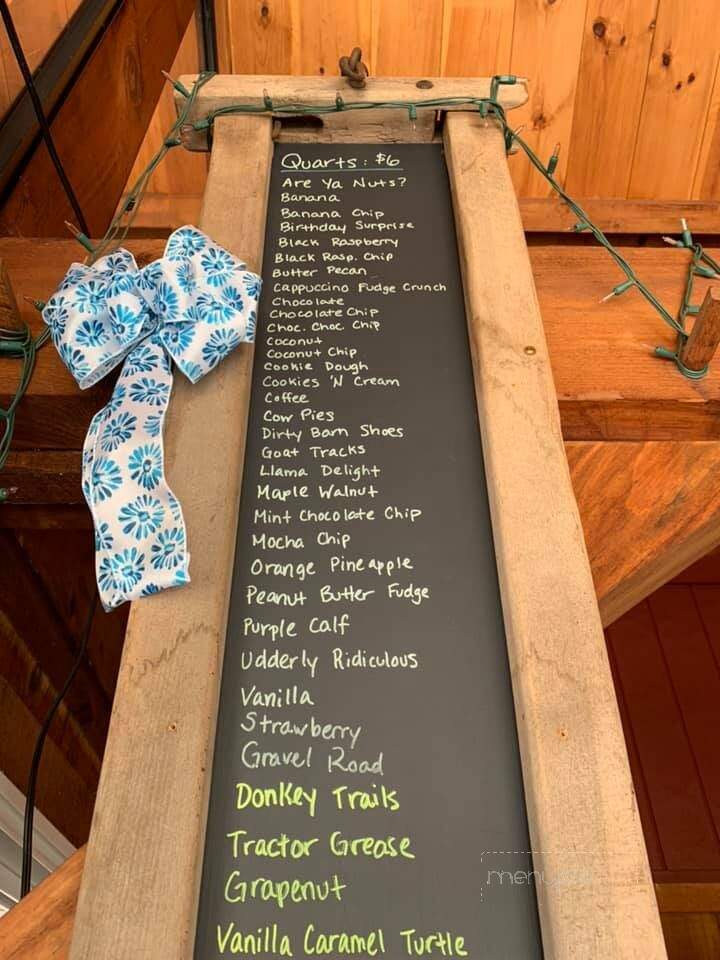 Quarts: $6
Are Ya Nuts?
Banana
Banana Chip
Birthday Surprise
Black Raspberry
Black Rasp. Chip
Butter Pecan
Cappuccino Fudge Crunch
Chocolate
Chocolate Chip
Choc. Choc. Chip
Coconut
Coconut Chip
Cookie Dough
Cookies 'N Cream
Coffee
Cow Pies
Dirty Barn Shoes
Goat Tracks
Llama Delight
Maple Walnut
Mint Chocolate Chip
Mocha Chip
Orange Pineapple
Peanut Butter Fudge
Purple Calf
Udderly Ridiculous
Vanilla
Strawberry
Gravel Road
Donkey Trails
Tractor Grease
Grapenut
Vanilla Caramel Turtle